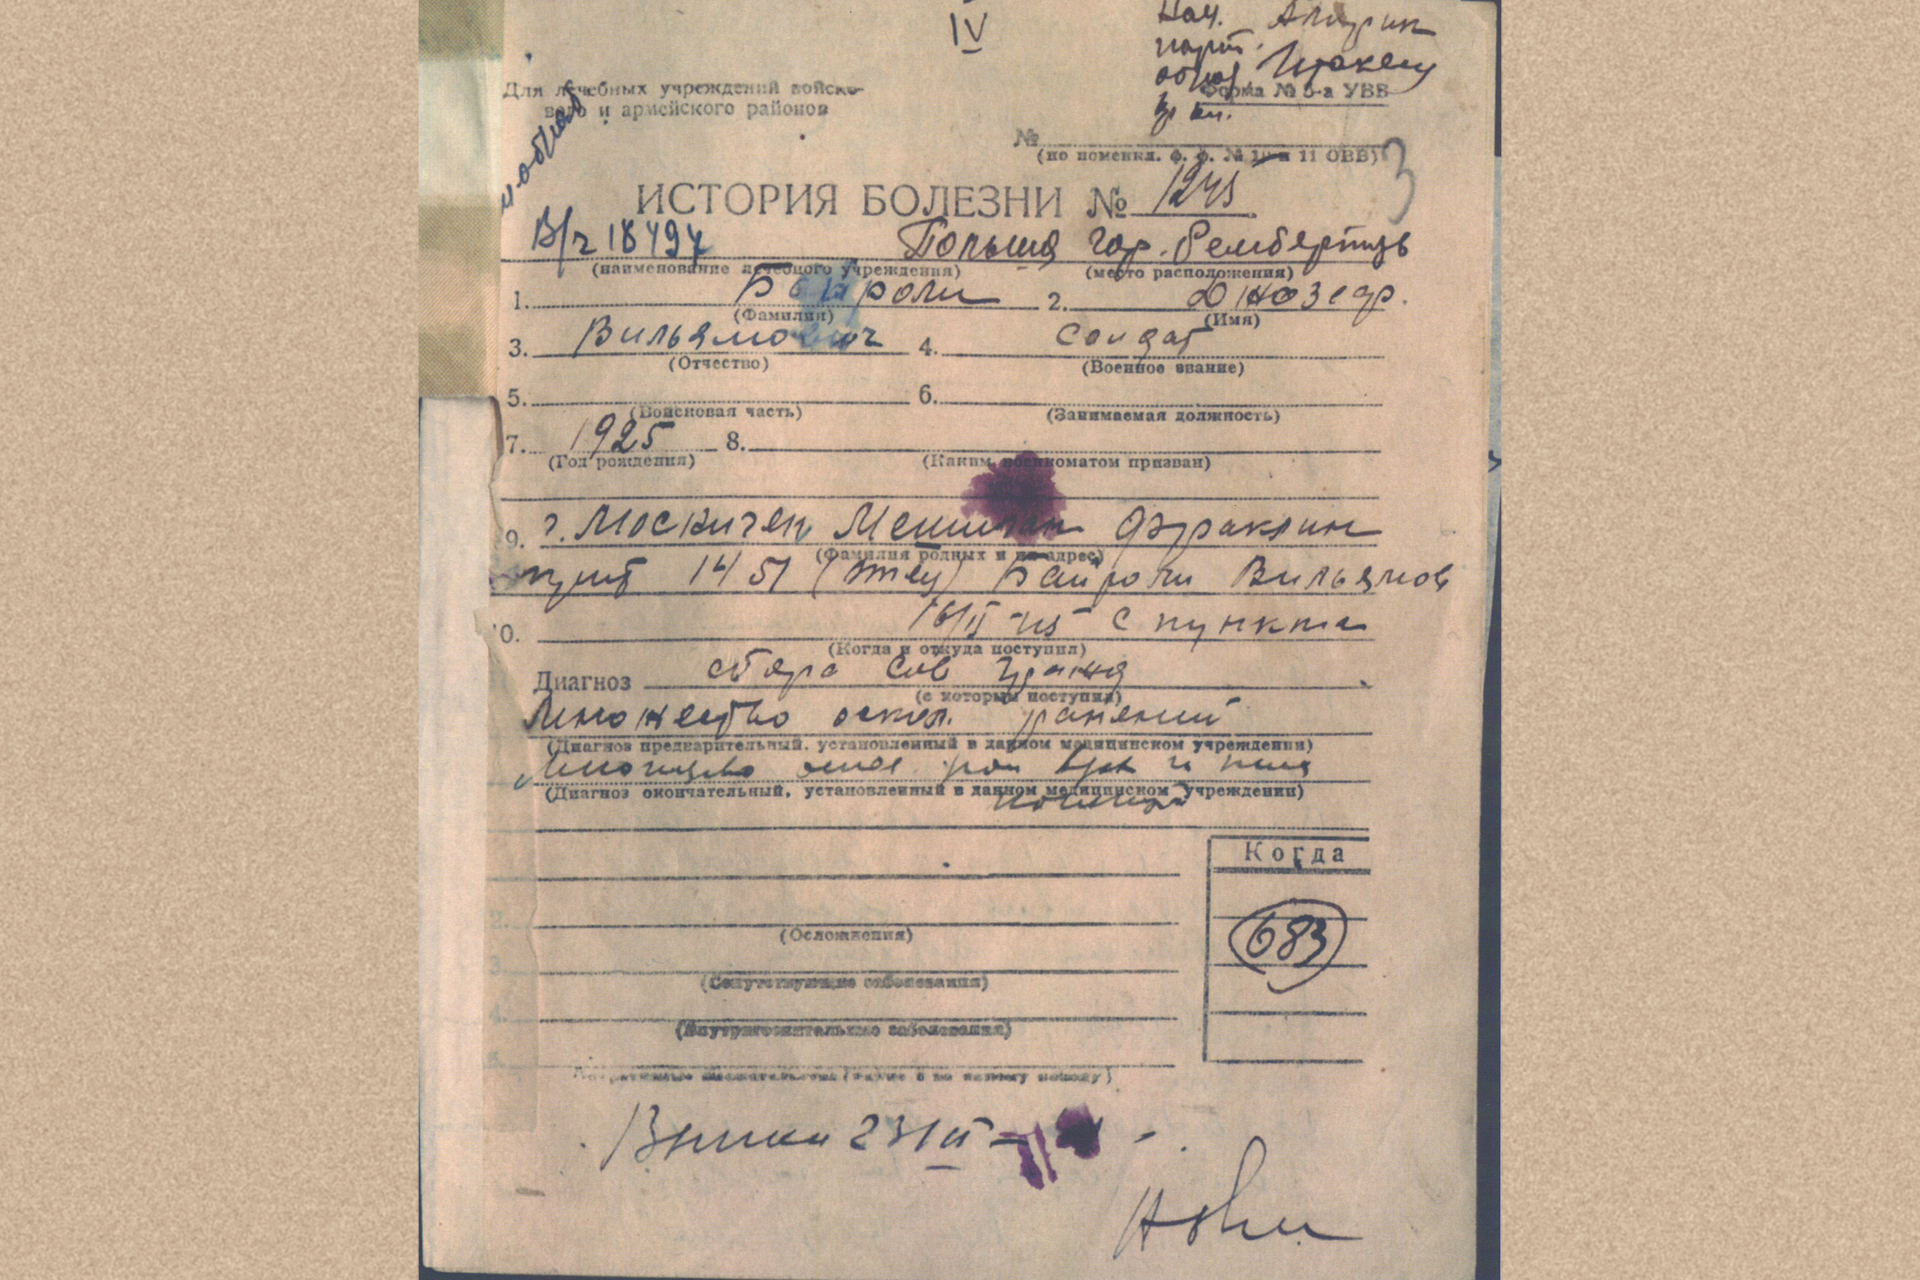 IV
Нач.
Для лечебных учреждений войско-
вого и армейского районов
Форма № 5-а УВВ
№
(по поменкл. ф. ф. № 10 и 11 ОВВ)
3
ИСТОРИЯ БОЛЕЗНИ № 1245
В/ч 18494 Польша гор. Рембертов
(наименование лечебного учреждения) (место расположения)
1. Байроли 2. Джозеф.
(Фамилия) (Имя)
3. Вильямович 4. Солдат
(Отчество) (Военное звание)
5. 6.
(Войсковая часть) (Занимаемая должность)
7. 1925 8.
(Год рождения) (Каким военкоматом призван)
9. г. Москичен Мешиган Фраклин
(Фамилия родных и их адрес)
1451 (Отец) Байроли Вильямов
10. 16/II-45 с пункта
(Когда и откуда поступил)
Диагноз сбора Сов Гражд
(с которым поступил)
Множество оскол. ранений
(Диагноз предварительный, установленный в данном медицинском учреждении)
(Диагноз окончательный, установленный в данном медицинском учреждении)
Когда
683
2.
(Осложнения)
3
(Сопутствующие заболевания)
4.
(Внутригоспитальные заболевания)
5.
23/II